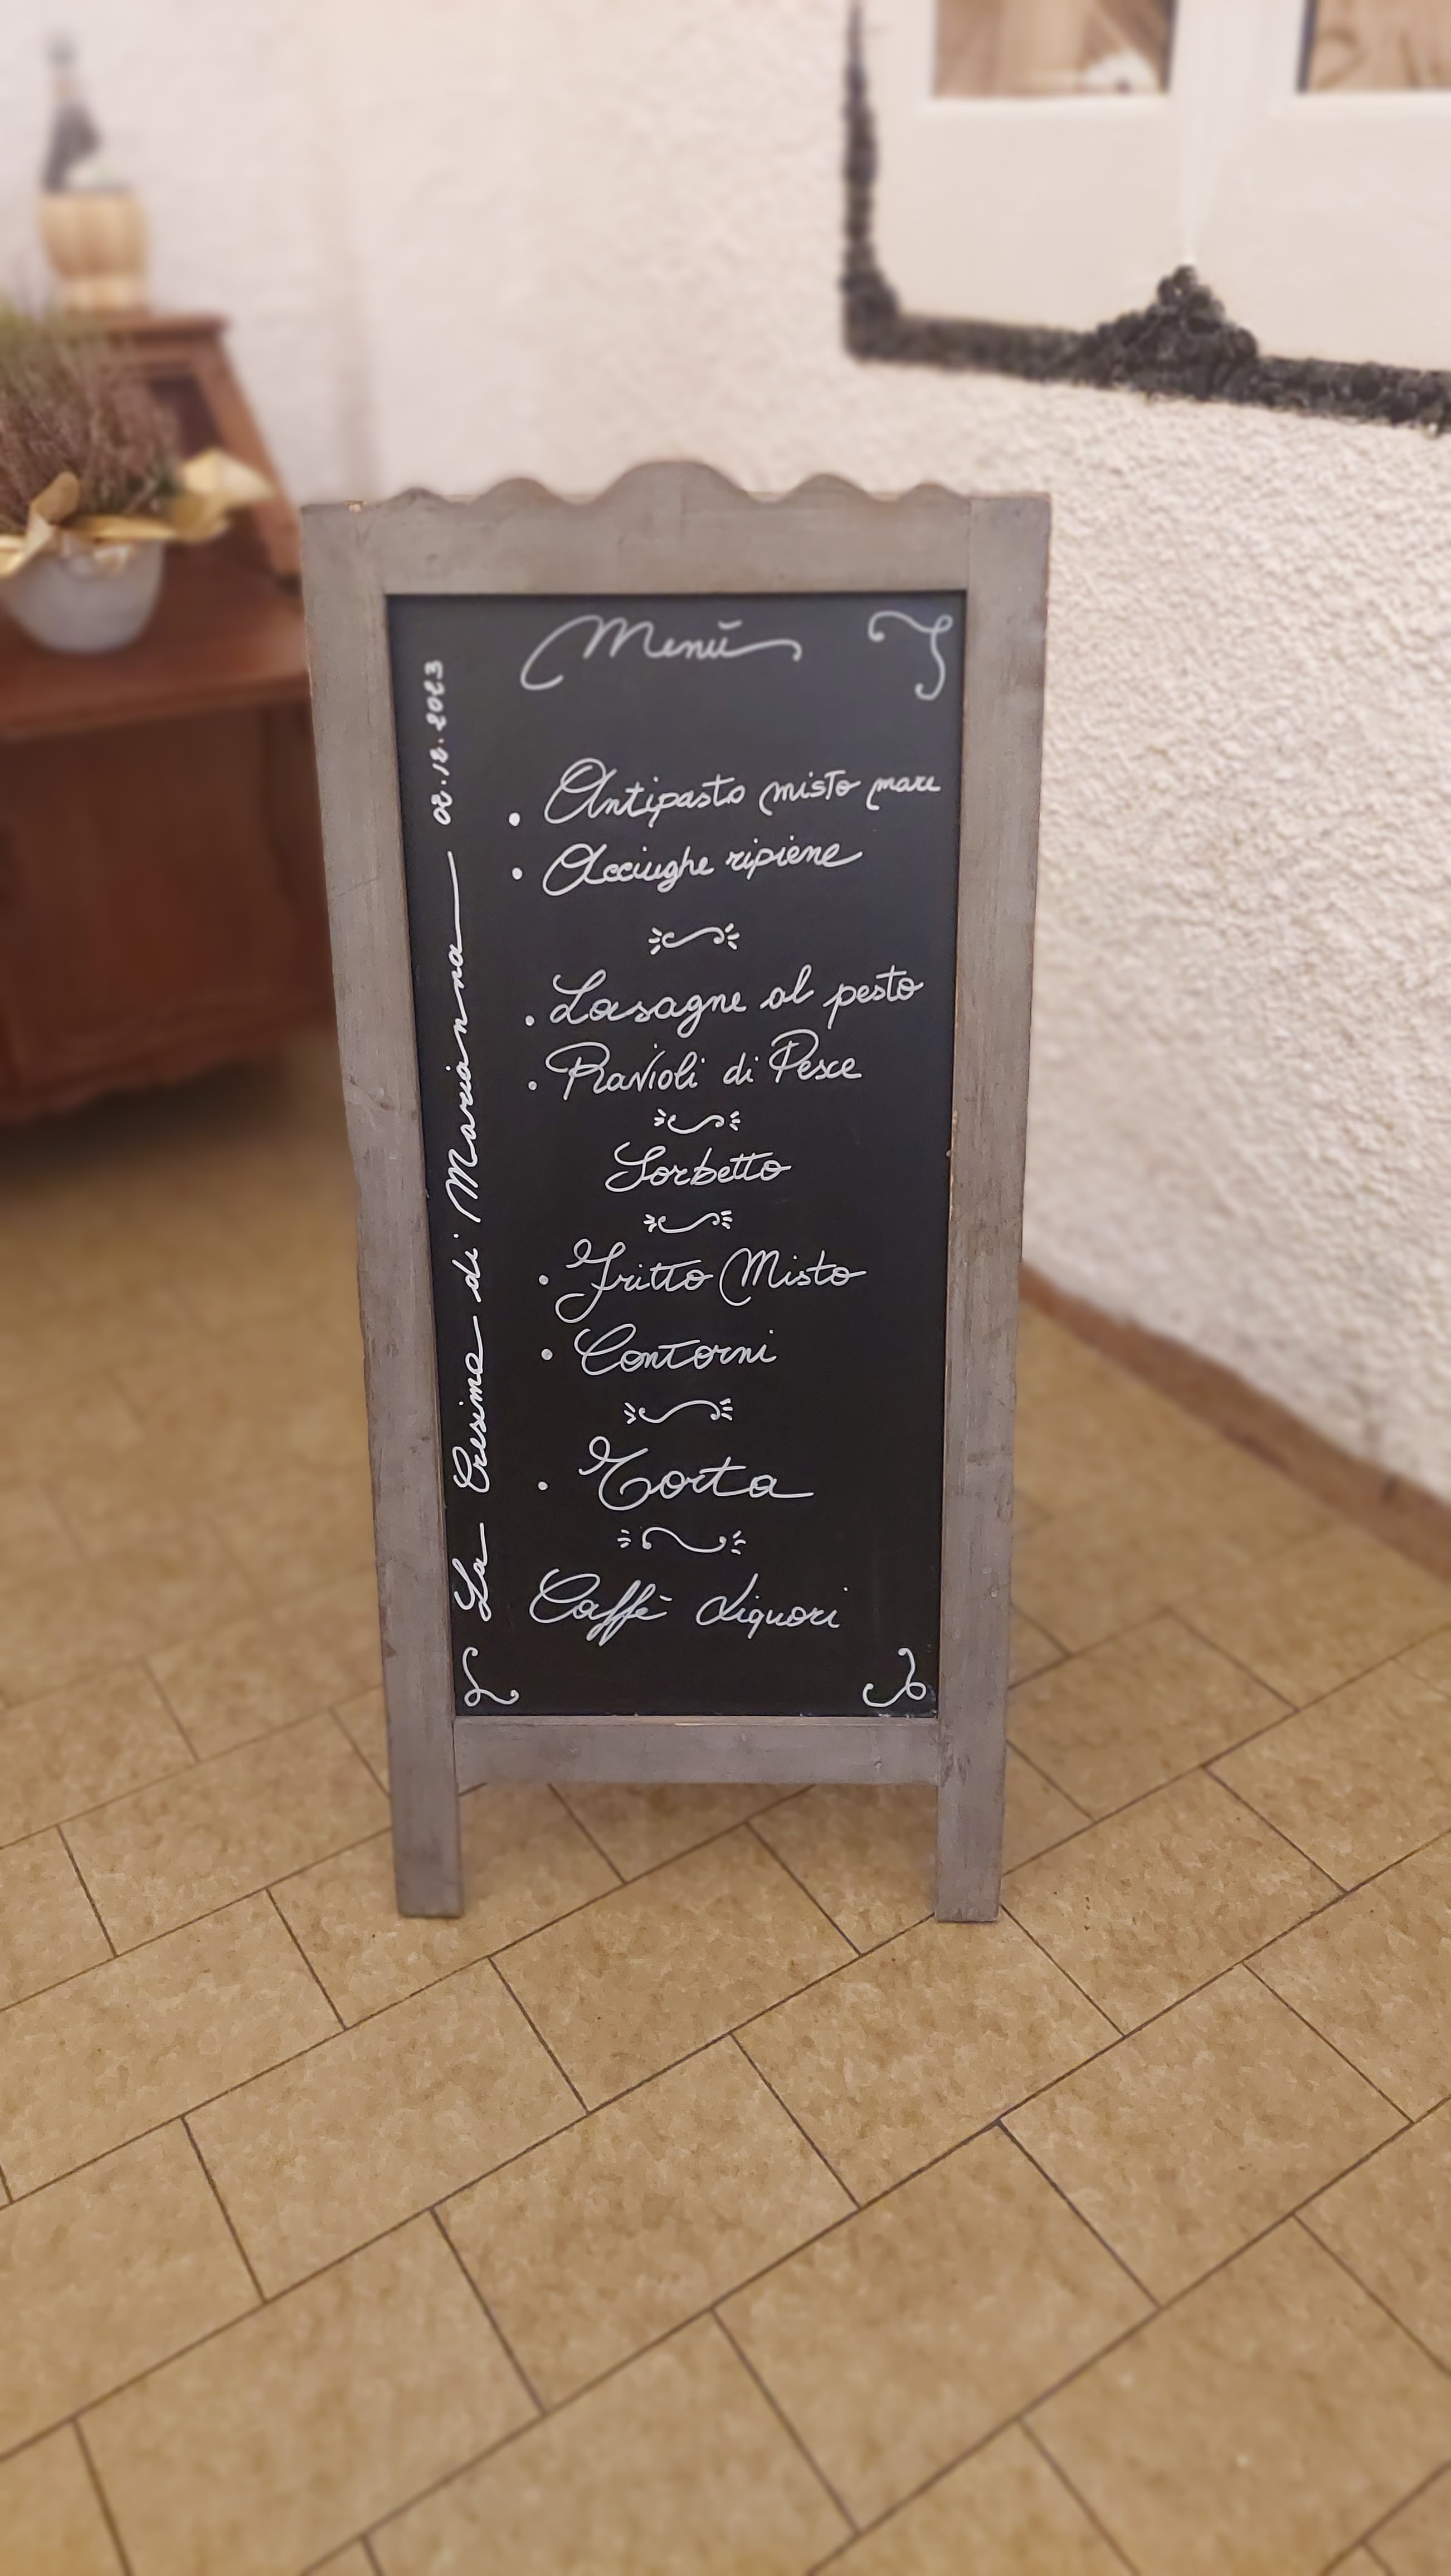 Menù
Antipasto misto mare
Acciughe ripiene
Lasagne al pesto
Ravioli di Pesce
Sorbetto
Fritto Misto
Contorni
Torta
Caffè Liquori
La Cresima di Marianna 02.12.2023